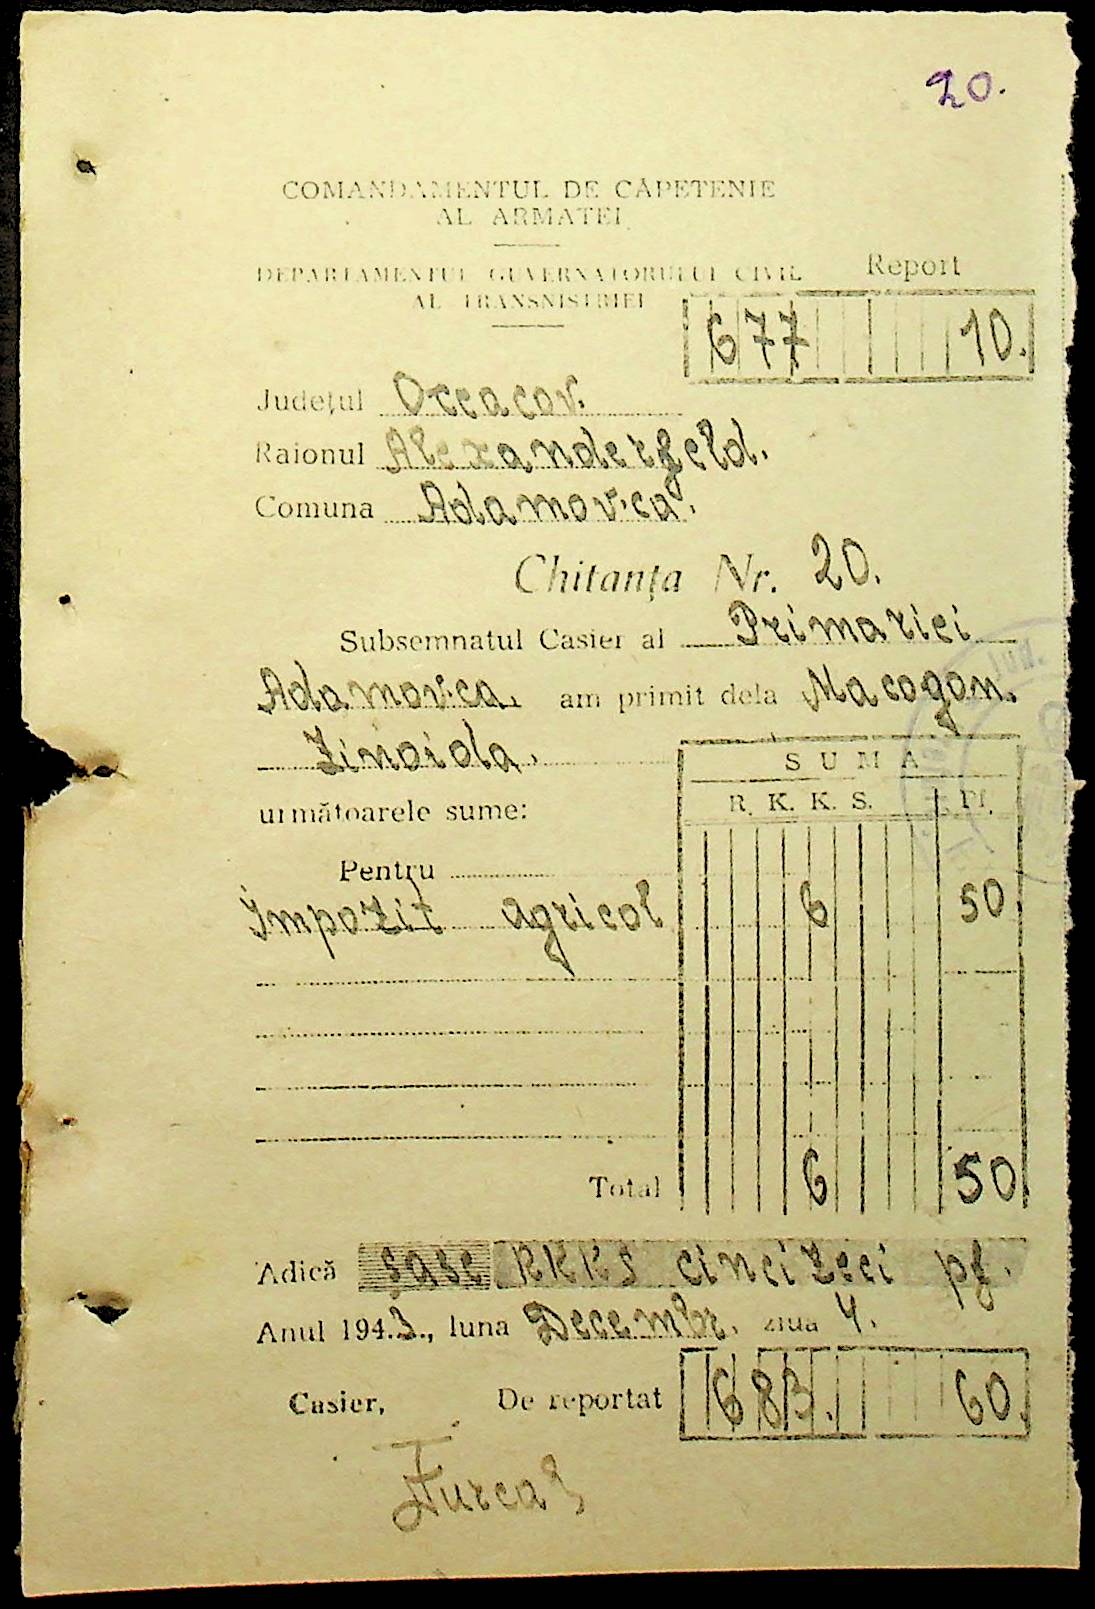 20.
COMANDAMENTUL DE CĂPETENIE
AL ARMATEI
DEPARTAMENTUL GUVERNATORULUI CIVIL
AL TRANSNISTRIEI
Report
677 10.
Județul Oceacov.
Raionul Alexanderfeld.
Comuna Adamovca.
Chitanța Nr. 20.
Subsemnatul Casier al Primariei
Adamovca. am primit dela Macogon.
Zinoida.
SUMA
următoarele sume: R. K. K. S. Pf.
Pentru
Impozit agricol 6 50
Total 6 50
Adică șase RKKS cincizeci pf.
Anul 1943., luna Decembr. ziua 4.
Casier, De reportat 683. 60.